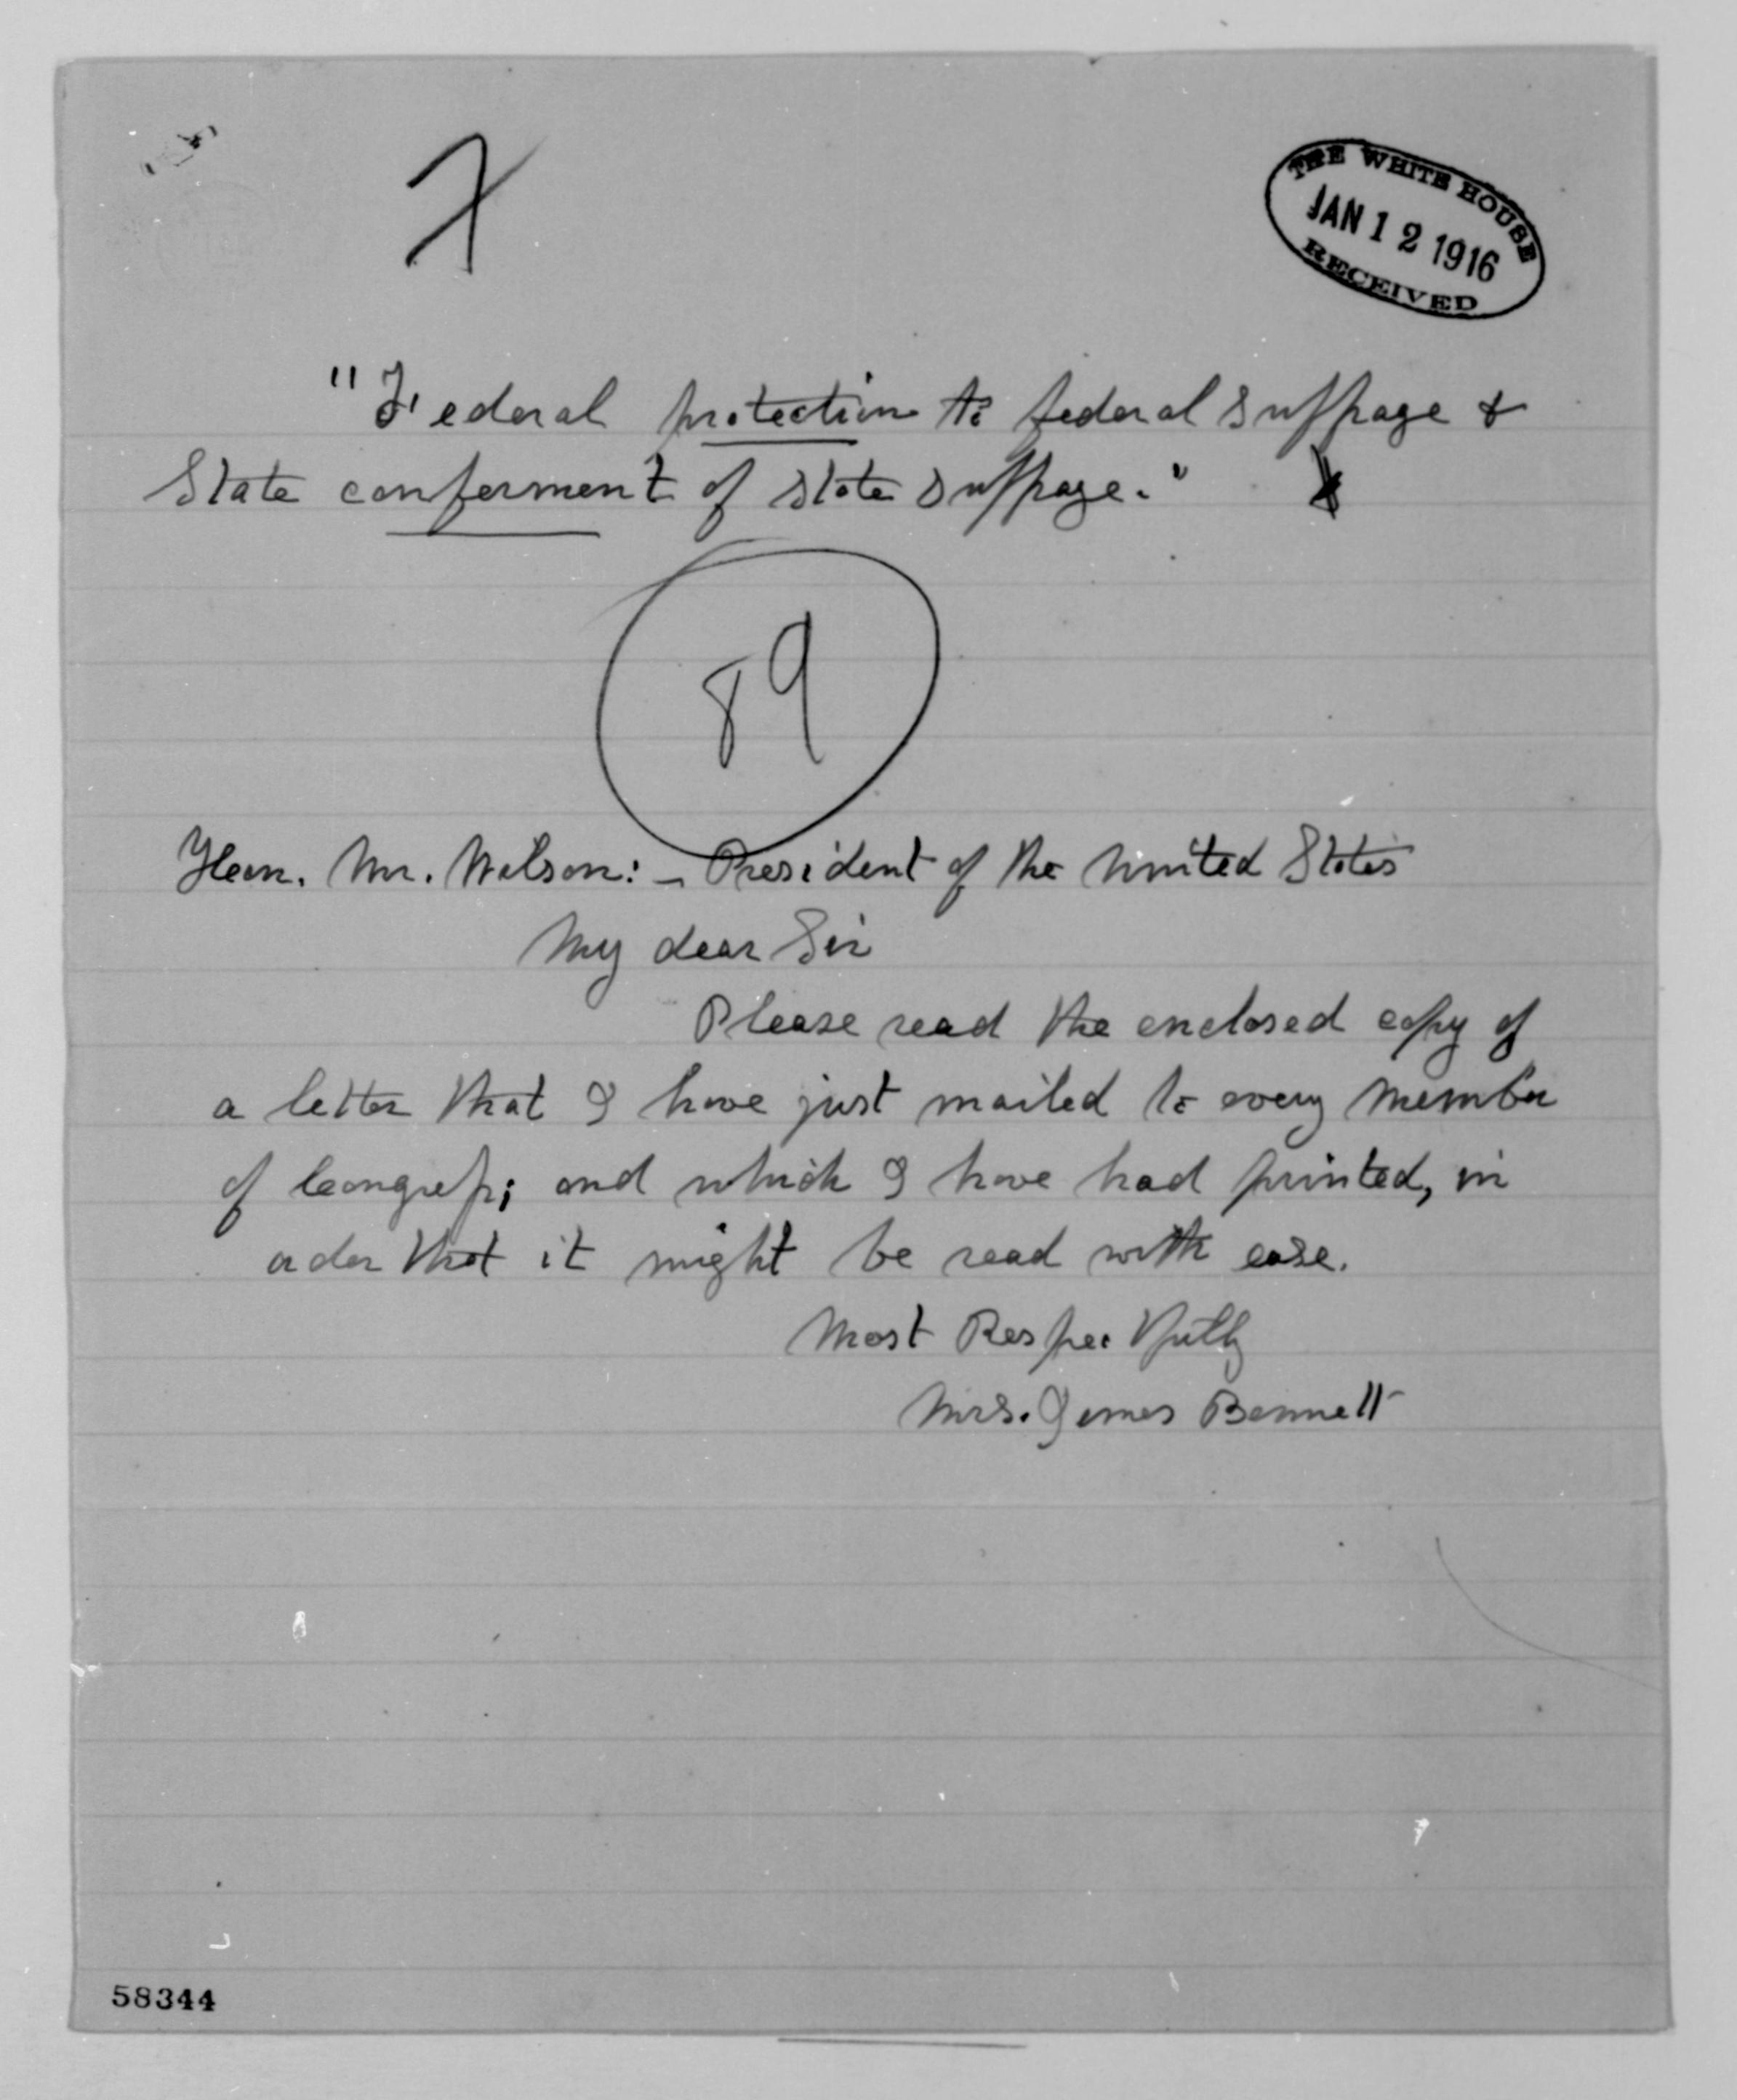 7
THE WHITE HOUSE
JAN 12 1916
RECEIVED
"Federal protection to federal suffrage &
State conferment of state suffrage."
89
Hon. Mr. Wilson: – President of the United States
My dear Sir
Please read the enclosed copy of
a letter that I have just mailed to every member
of Congress; and which I have had printed, in
order that it might be read with ease.
Most Respectfully
Mrs. James Bennett
58344